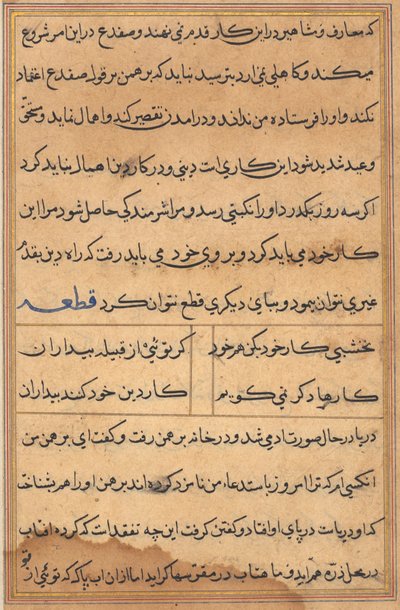 که معارف و مشاهیر درین کار قدم نمی نهند و ضفدع درین امر شروع
میکند و کاهلی نمی ارد بترسید نباید که برهمن بر قول ضفدع اعتماد
نکند و او را فرستاده من نداند و در امدن تقصیر کند و اهمال نماید و مستحق
وعید شدید شود این کاری است دینی و در کار دین اهمال نباید کرد
اگر سه روز بگذرد او را نکبتی رسد و مرا شرمندگی حاصل شود مرا این
کار خود می باید کرد و بروی خود می باید رفت که راه دین بقدم
غیری نتوان پیمود و بپای دیگری قطع نتوان کرد قطعه
نخشبی کار خود بکن هم خود گر تویی از قبیله بیداران
کارها دگر نمی کویم کار دین خود کنند بیداران
دریا در حال صورت ادمی شد و در خانه برهمن رفت و کفت ای برهمن من
انکسی ام که ترا امروز یاست دعاء من نامزد کرده اند برهمن او را هم بشناخت
که او دریاست در پای او افتاد و کفتن کرفت این چه تفقدات که کرده افتاب
در محل ذره هم اید و ماهتاب در مقر سها کراید اما ازان اب پاک که توئی از تو